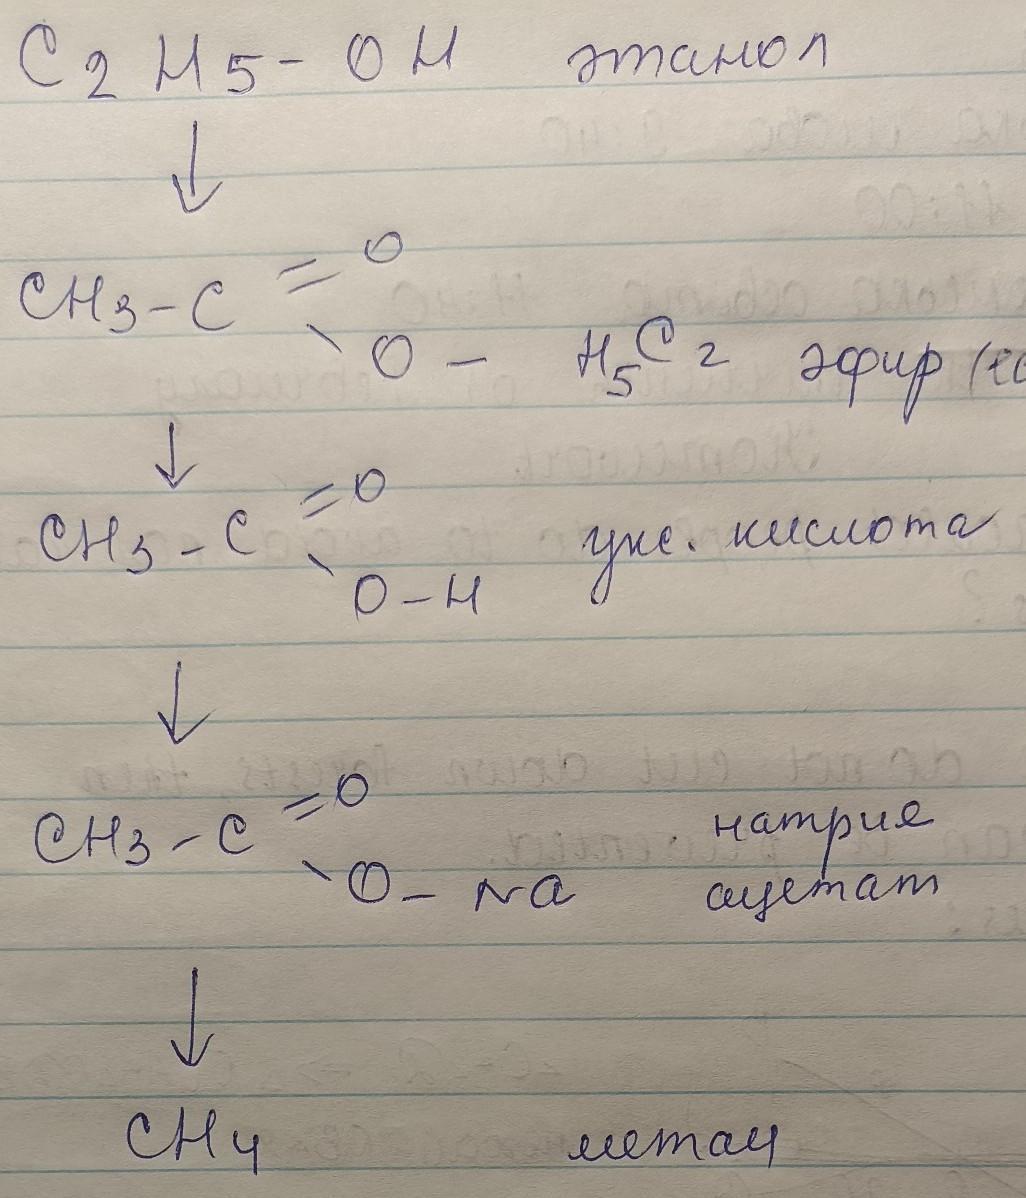 C2H5-OH этанол
↓
CH3-C =O
\ O - H5C2 эфир
↓
CH3-C =O
\ O-H укс. кислота
↓
CH3-C =O натрия
\ O-Na ацетат
↓
CH4 метан